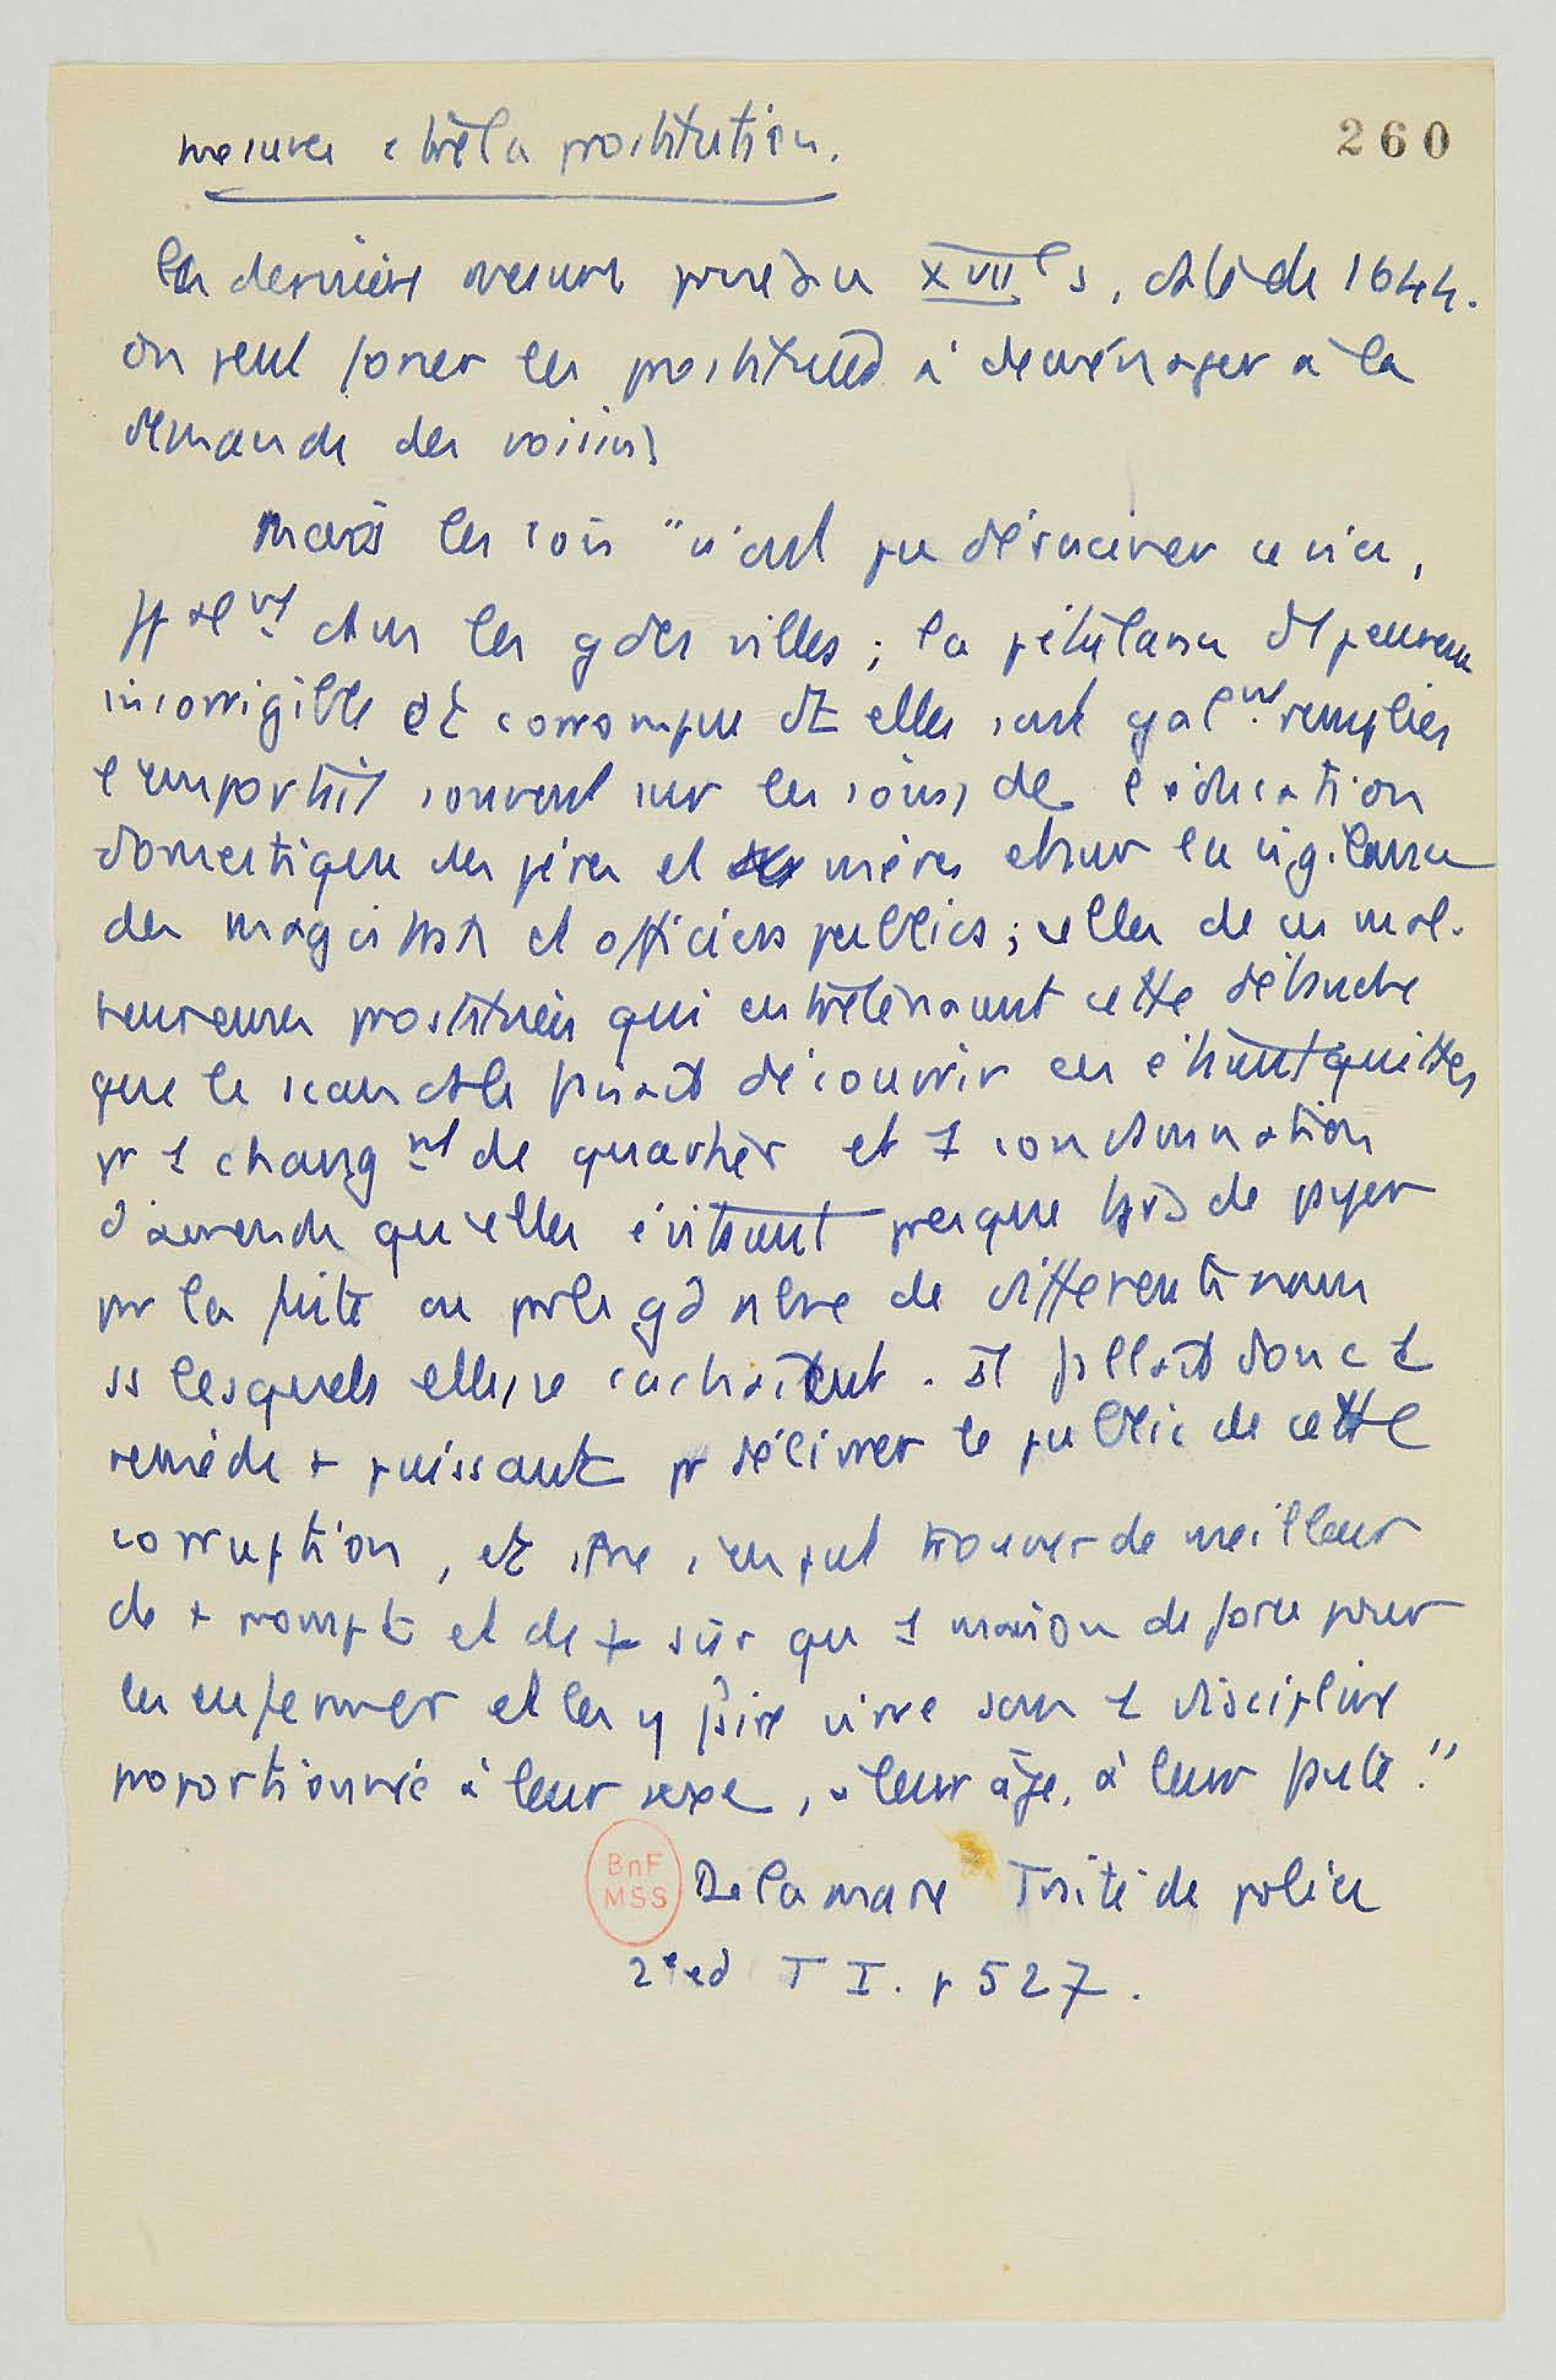 mesures contre la prostitution.
260
La dernière mesure prise au XVIIe s. date de 1644.
On peut forcer les prostituées à déménager à la
demande des voisins
Mais les lois "n'ont pu déraciner ce vice,
ppalmt dans les gdes villes ; la
incorrigible et corrompue dt elles sont galmt remplies
l'emportait souvent sur les soins de l'éducation
domestique des pères et mères et sur la vigilance
des magistrats et officiers publics ; celles de ces mal-
heureuses prostituées qui entretenaient cette débauche
que le scandale faisait découvrir en étaient quittes
pr 1 changmt de quartier et 1 condamnation
d'amende qu'elles évitaient presque tjrs de payer
pr la fuite ou pr le gd nbre de différents noms
ss lesquels elles se cachaient. Il fallait donc 1
remède + puissant pr délivrer le public de cette
corruption, et il ne s'en put trouver de meilleur
de + prompt et de + sûr qu 1 maison de force pour
les enfermer et les y faire vivre sous 1 discipline
proportionnée à leur sexe, à leur âge, à leur faute."
BnF
MSS
Delamare Traité de police
2e ed T I. p 527.